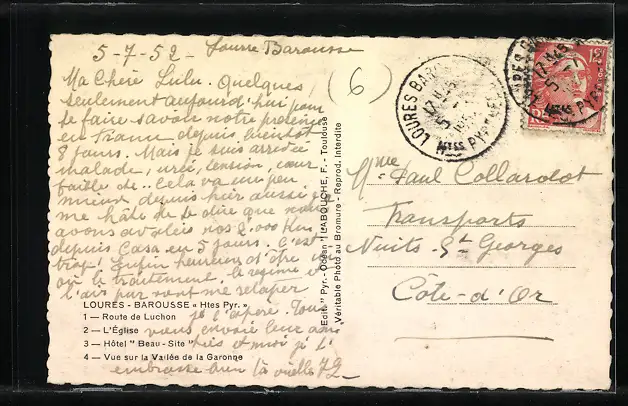 5-7-52 - Loures Barousse
Ma Chère Lulu. Quelques
seulement aujourd'hui pour
te faire savoir notre présence
en France depuis bientôt
8 jours. Mais je suis arrivée
malade, urée, tension, cœur
faible etc.. Cela va un peu
mieux depuis hier aussi je
me hâte de te dire que nous
avons avalés nos 8.000 Km
depuis Casa en 5 jours. C'est
trop! Enfin heureux d'être ici
où le traitement, le régime et
l'air pur vont me retaper
je l'espère. Tous
vous envoie leur
et moi je t'
embrasse bien
(6)
LOURES - BAROUSSE « Htes Pyr. »
1 — Route de Luchon
2 — L'Église
3 — Hôtel " Beau - Site "
4 — Vue sur la Vallée de la Garonne
Edit. " Pyr.-Océan " LABOUCHE, F. - Toulouse
Véritable Photo au Bromure - Reprod. Interdite
LOURES BAR
17H45
5-7
1952
Htes PYRENEES
Mme Paul Collardot
Transports
Nuits St Georges
Côte-d'Or